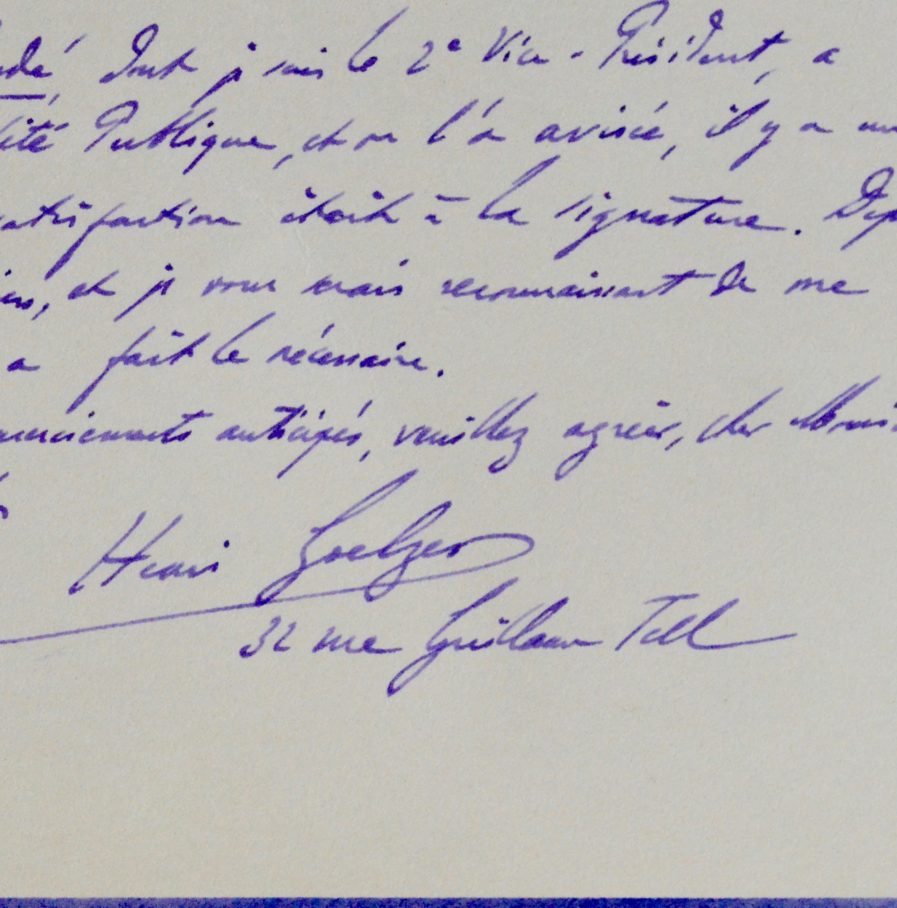 dé, dont je suis le 2e Vice-Président, a
lité Publique, et on l'a avisé, il y a un
satisfaction était à la signature. Dep
, et je vous serais reconnaissant de me
a fait le nécessaire.
merciements anticipés, veuillez agréer, cher Monsi
Henri Goelzer
32 rue Guillaume Tell